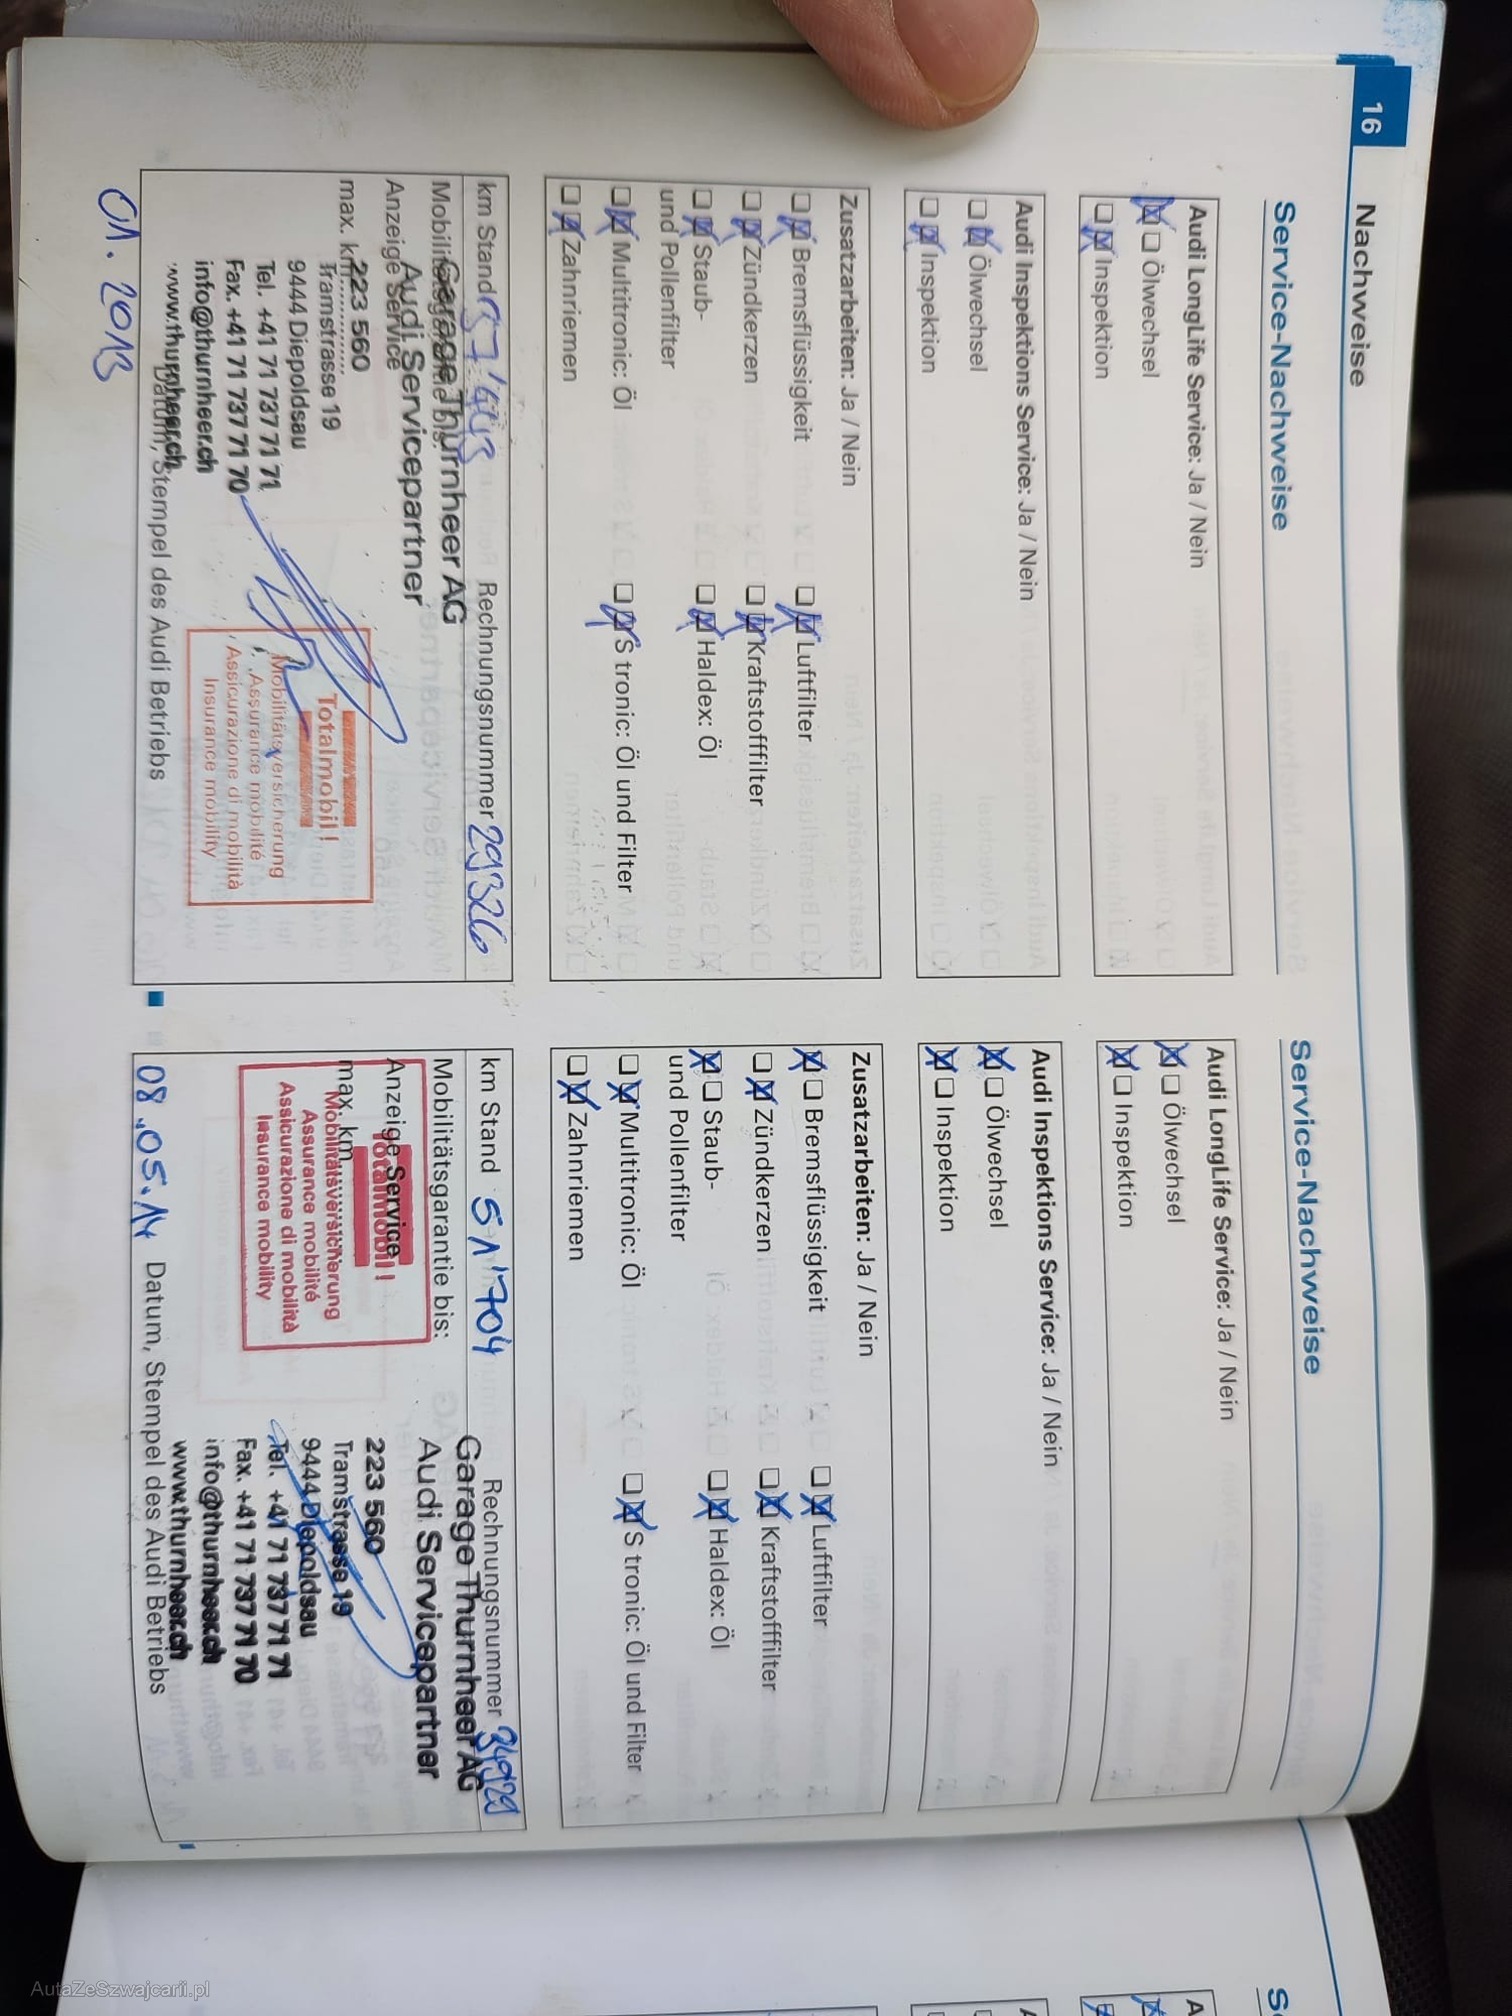 16 Nachweise
Service-Nachweise
Audi LongLife Service: Ja / Nein
Ölwechsel
Inspektion
Audi Inspektions Service: Ja / Nein
Ölwechsel
Inspektion
Zusatzarbeiten: Ja / Nein
Bremsflüssigkeit Luftfilter
Zündkerzen Kraftstofffilter
Staub- Haldex: Öl
und Pollenfilter
Multitronic: Öl S tronic: Öl und Filter
Zahnriemen
km Stand Rechnungsnummer 29326
Mobilitätsgarantie bis:
Garage Thurnheer AG
Audi Servicepartner
Anzeige Service
max. km
223 560
Tramstrasse 19
9444 Diepoldsau
Tel. +41 71 737 71 71
Fax. +41 71 737 71 70
info@thurnheer.ch
www.thurnheer.ch
Totalmobil!
Mobilitätsversicherung
Assurance mobilité
Assicurazione di mobilità
Insurance mobility
Datum, Stempel des Audi Betriebs
01. 2013
Service-Nachweise
Audi LongLife Service: Ja / Nein
Ölwechsel
Inspektion
Audi Inspektions Service: Ja / Nein
Ölwechsel
Inspektion
Zusatzarbeiten: Ja / Nein
Bremsflüssigkeit Luftfilter
Zündkerzen Kraftstofffilter
Staub- Haldex: Öl
und Pollenfilter
Multitronic: Öl S tronic: Öl und Filter
Zahnriemen
km Stand 51'704 Rechnungsnummer 34929
Mobilitätsgarantie bis:
Anzeige Service
max. km
Totalmobil!
Mobilitätsversicherung
Assurance mobilité
Assicurazione di mobilità
Insurance mobility
Garage Thurnheer AG
Audi Servicepartner
223 560
Tramstrasse 19
9444 Diepoldsau
Tel. +41 71 737 71 71
Fax. +41 71 737 71 70
info@thurnheer.ch
www.thurnheer.ch
08.05.14 Datum, Stempel des Audi Betriebs
AutaZeSzwajcarii.pl